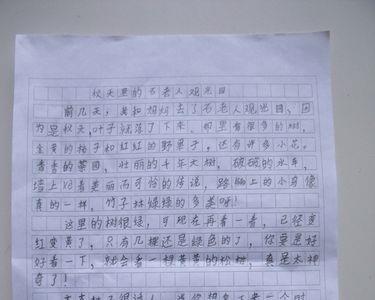 秋天里的石老人观光园
前几天,我和妈妈去了石老人观光园,因
为是秋天,叶子就落了下来。那里有很多的树,
金黄的柿子和红红的野果子,还有许多小花。
香香的茶园,壮丽的千年大树,破破的水车,
墙上 着美丽而可怕的传说,路 上的小鸟像
真的一样,竹子林绿绿的多美呀!
这里的树很绿,可现在再看一看,已经变
红变黄了,只有几棵还是绿色的了,你要是好
好看一下,就会看一棵黄黄的松树,真是太神
奇了!